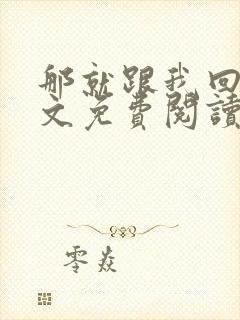 那就跟我回
文免費閱讀
零焱